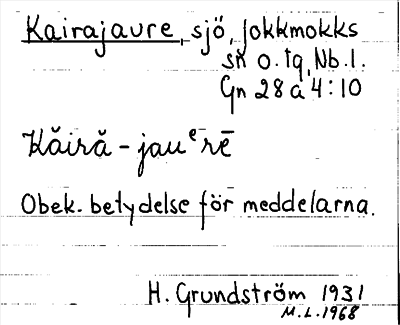 Kairajaure, sjö, Jokkmokks
sn o. tg, Nb. l.
Gn 28 a 4:10
Kăiră-jauᵉrē
Obek. betydelse för meddelarna.
H. Grundström 1931
M.L. 1968